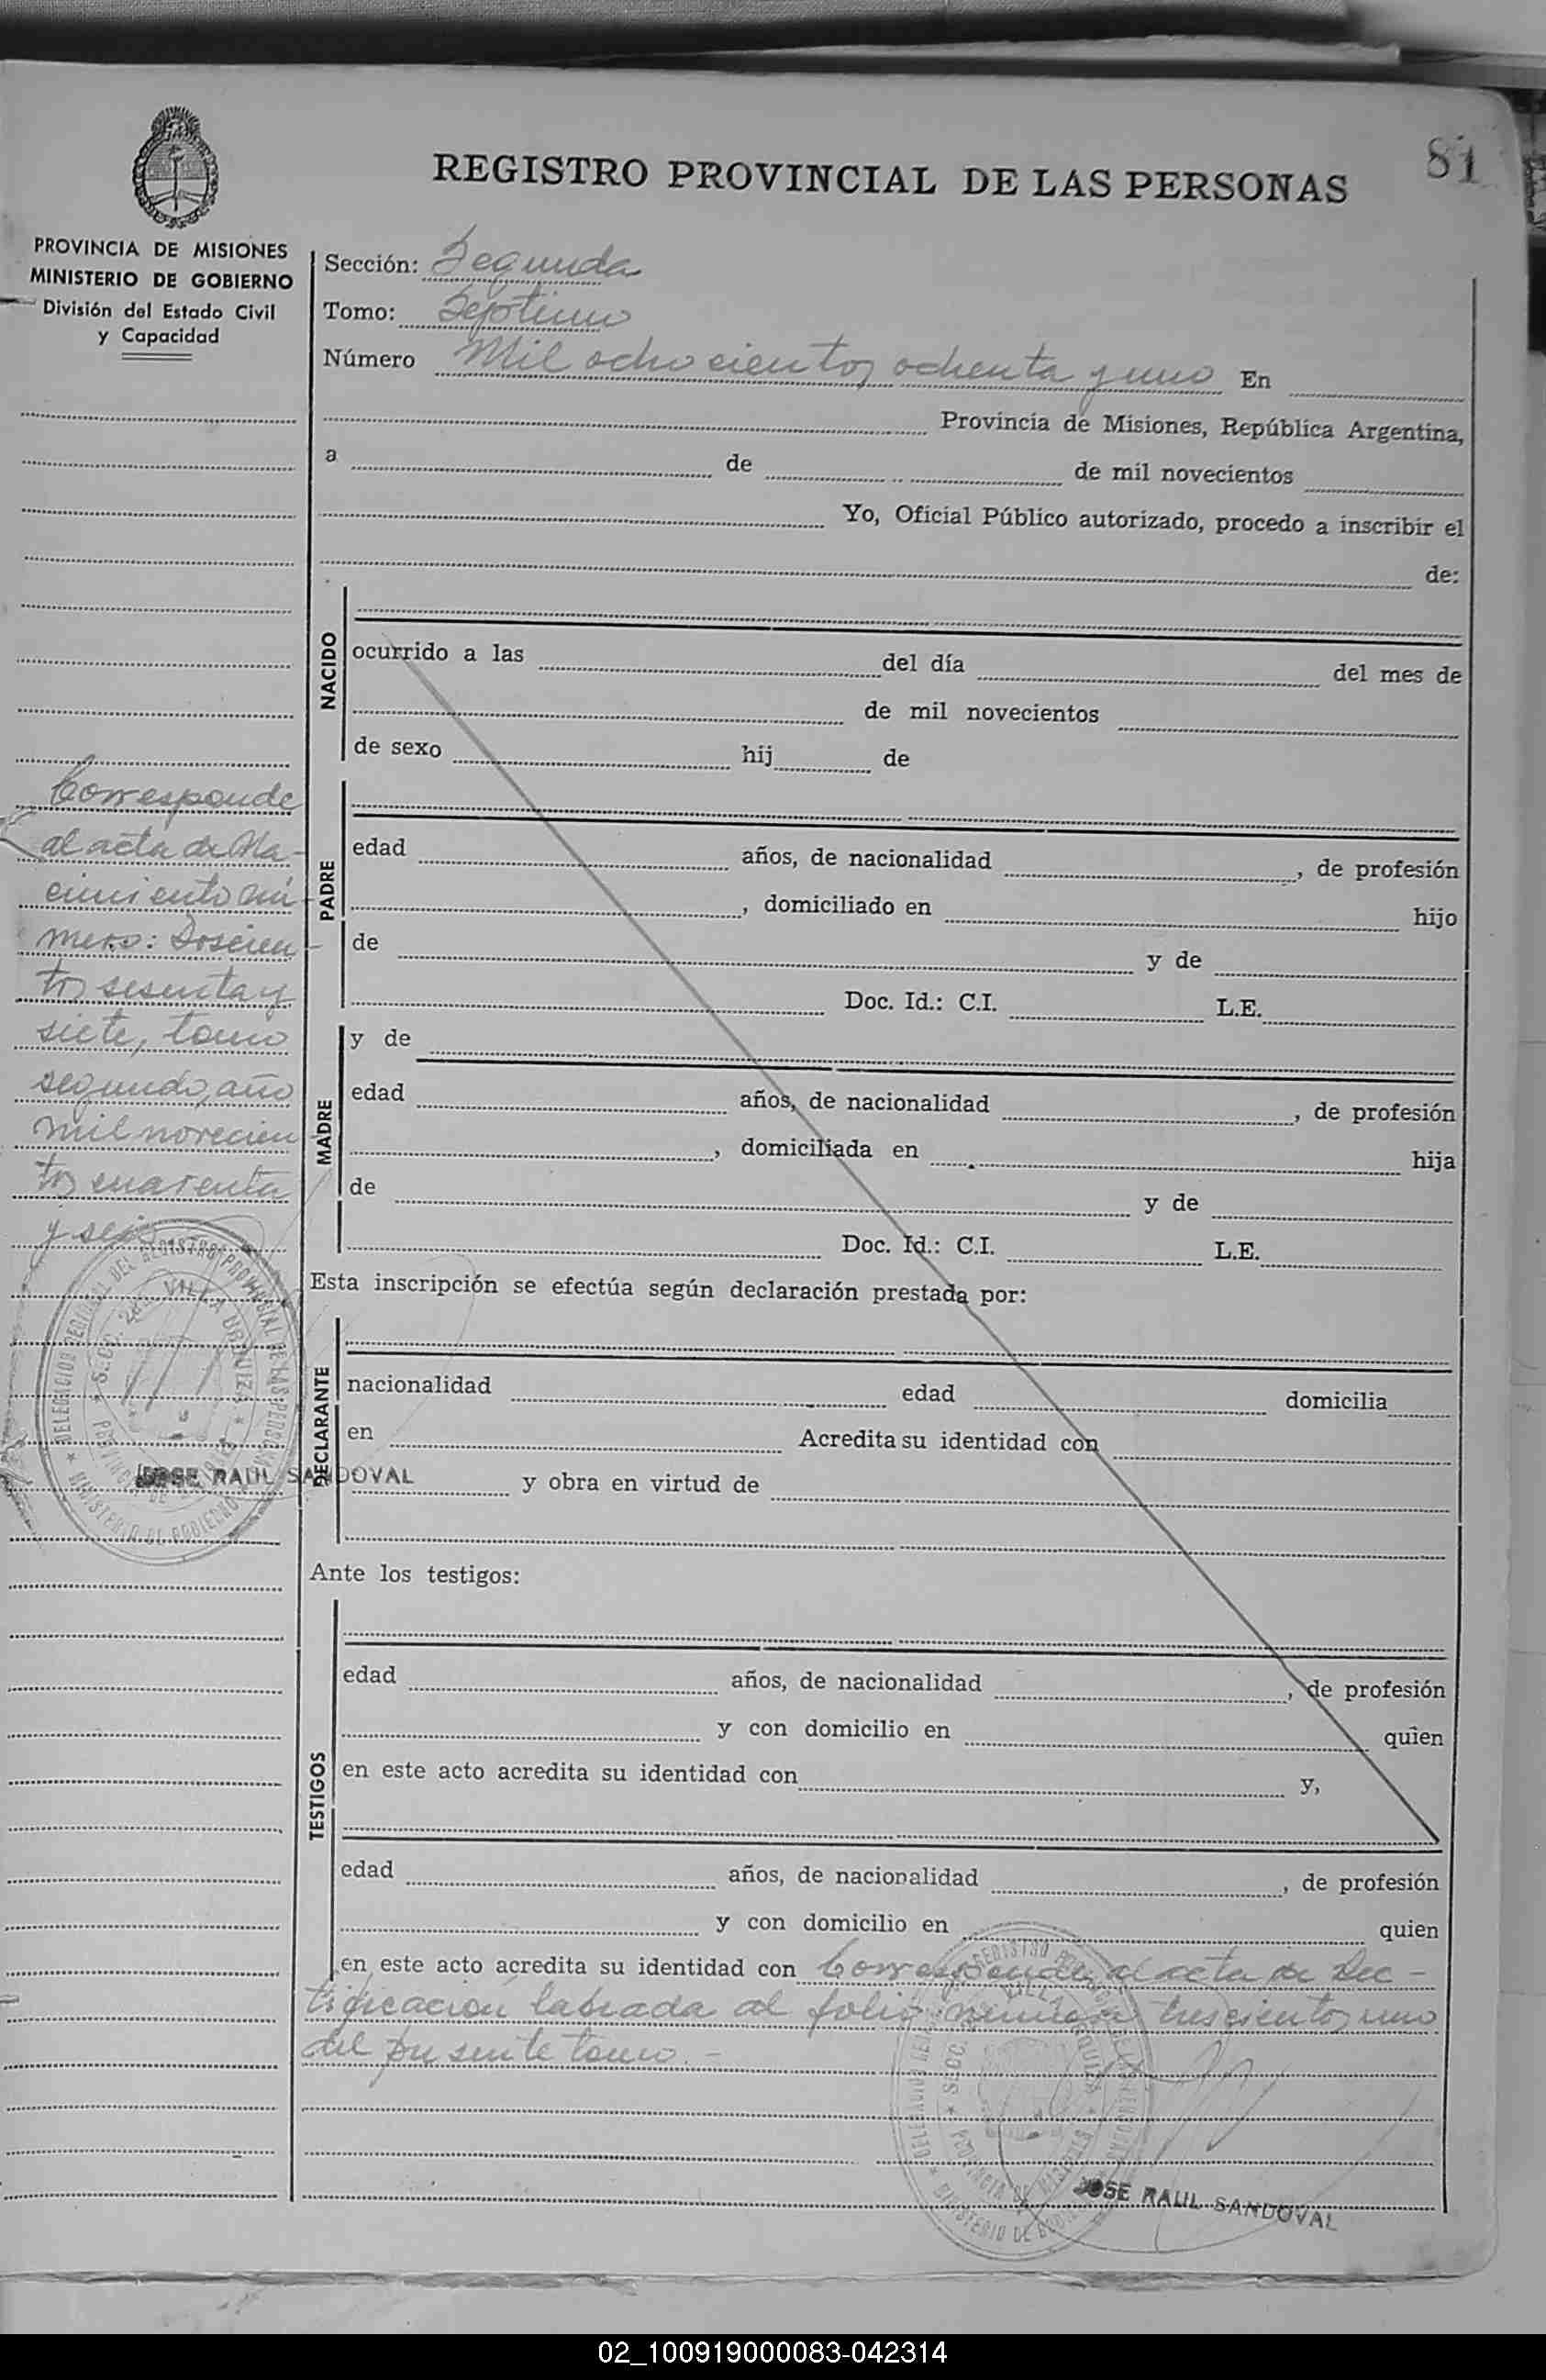 81
REGISTRO PROVINCIAL DE LAS PERSONAS
PROVINCIA DE MISIONES
MINISTERIO DE GOBIERNO
División del Estado Civil
y Capacidad
Sección: Segunda
Tomo: Septimo
Número Mil ochocientos ochenta y uno En
Provincia de Misiones, República Argentina,
a de de mil novecientos
Yo, Oficial Público autorizado, procedo a inscribir el
de:
NACIDO
ocurrido a las del día del mes de
de mil novecientos
de sexo hij de
PADRE
edad años, de nacionalidad , de profesión
, domiciliado en hijo
de y de
Doc. Id.: C.I. L.E.
MADRE
y de
edad años, de nacionalidad , de profesión
, domiciliada en hija
de y de
Doc. Id.: C.I. L.E.
Esta inscripción se efectúa según declaración prestada por:
DECLARANTE
nacionalidad edad domicilia
en Acredita su identidad con
y obra en virtud de
Ante los testigos:
TESTIGOS
edad años, de nacionalidad , de profesión
y con domicilio en quien
en este acto acredita su identidad con y,
edad años, de nacionalidad , de profesión
y con domicilio en quien
en este acto acredita su identidad con Corresponde al acta de Rec-
tificacion labrada al folio número trescientos uno
del presente tomo.-
JOSE RAUL SANDOVAL
Corresponde
al acta de Na-
cimiento nú-
mero: Doscien-
tos sesenta y
siete, tomo
segundo, año
mil novecien-
tos cuarenta
y seis
DELEGACION REGIONAL DEL REGISTRO PROVINCIAL DE LAS PERSONAS
SECC. 2da. VILLA URQUIZA
PROVINCIA DE MISIONES
MINISTERIO DE GOBIERNO
JOSE RAUL SANDOVAL
02_100919000083-042314